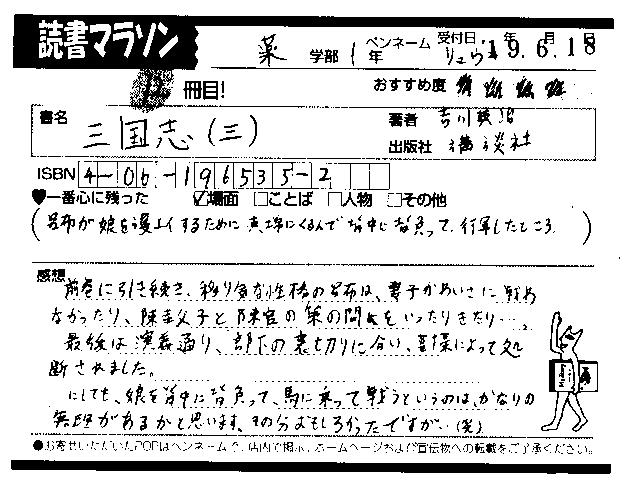 読書マラソン
薬 学部 1 年 ペンネーム りゅうォ 受付日 年 月 日 19.6.18
冊目!
おすすめ度
書名 三国志(三)
著者 吉川英治
出版社 講談社
ISBN 4-06-196535-2
♥一番心に残った ☑場面 □ことば □人物 □その他
(呂布が娘を にくるんで背中に背負って、行軍したところ)
感想
前巻に引き続き、移り気な性格の呂布は、妻子かわいさに戦わ
なかったり、陳圭父子と陳宮の策の間をいったりきたり…。
最後は演義通り、部下の裏切りに合い、曹操によって処
断されました。
にしても、娘を背中に背負って、馬に乗って戦うというのは、かなりの
無理があるかと思います、その分おもしろかったですが。(笑)
●お寄せいただいたPOPはペンネームで、店内で掲示、ホームページおよび宣伝物への転載をご了承ください。